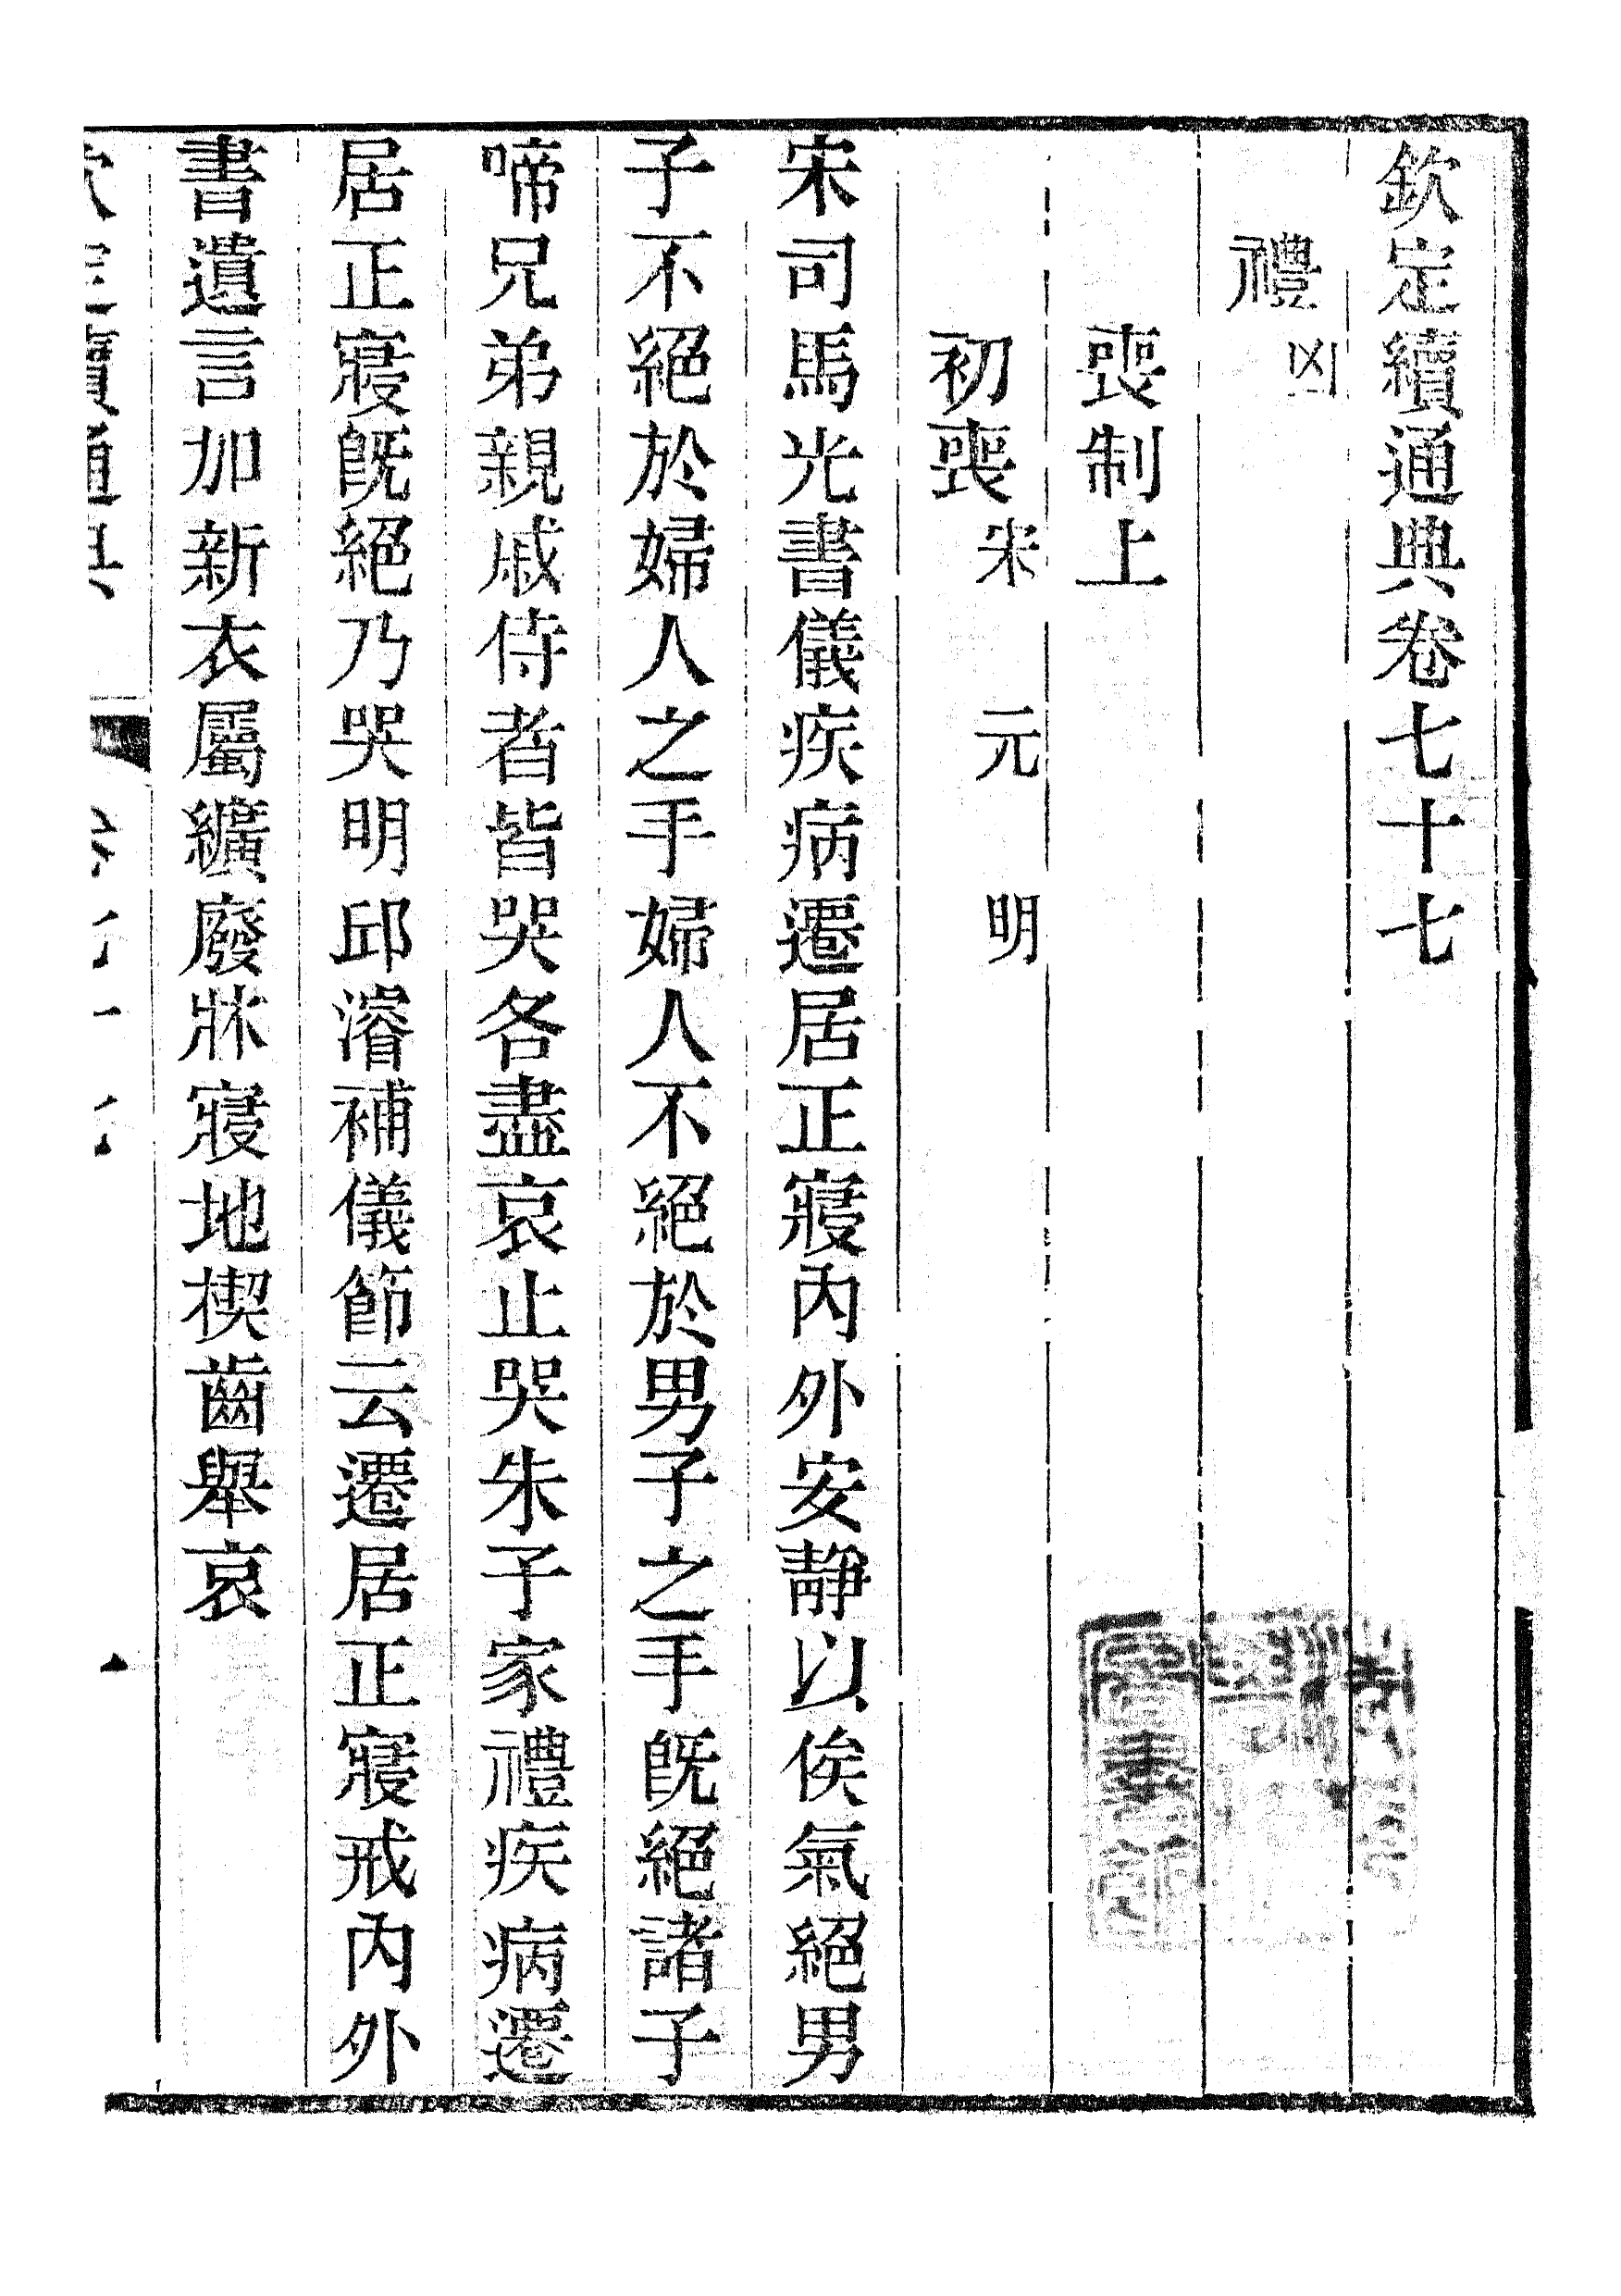 欽定續通典卷七十七
禮凶
喪制上
初喪宋 元 明
宋司馬光書儀疾病遷居正寢內外安靜以俟氣絕男
子不絕於婦人之手婦人不絕於男子之手旣絕諸子
啼兄弟親戚侍者皆哭各盡哀止哭朱子家禮疾病遷
居正寢旣絕乃哭明邱濬補儀節云遷居正寢戒內外
書遺言加新衣屬纊廢牀寢地楔齒舉哀